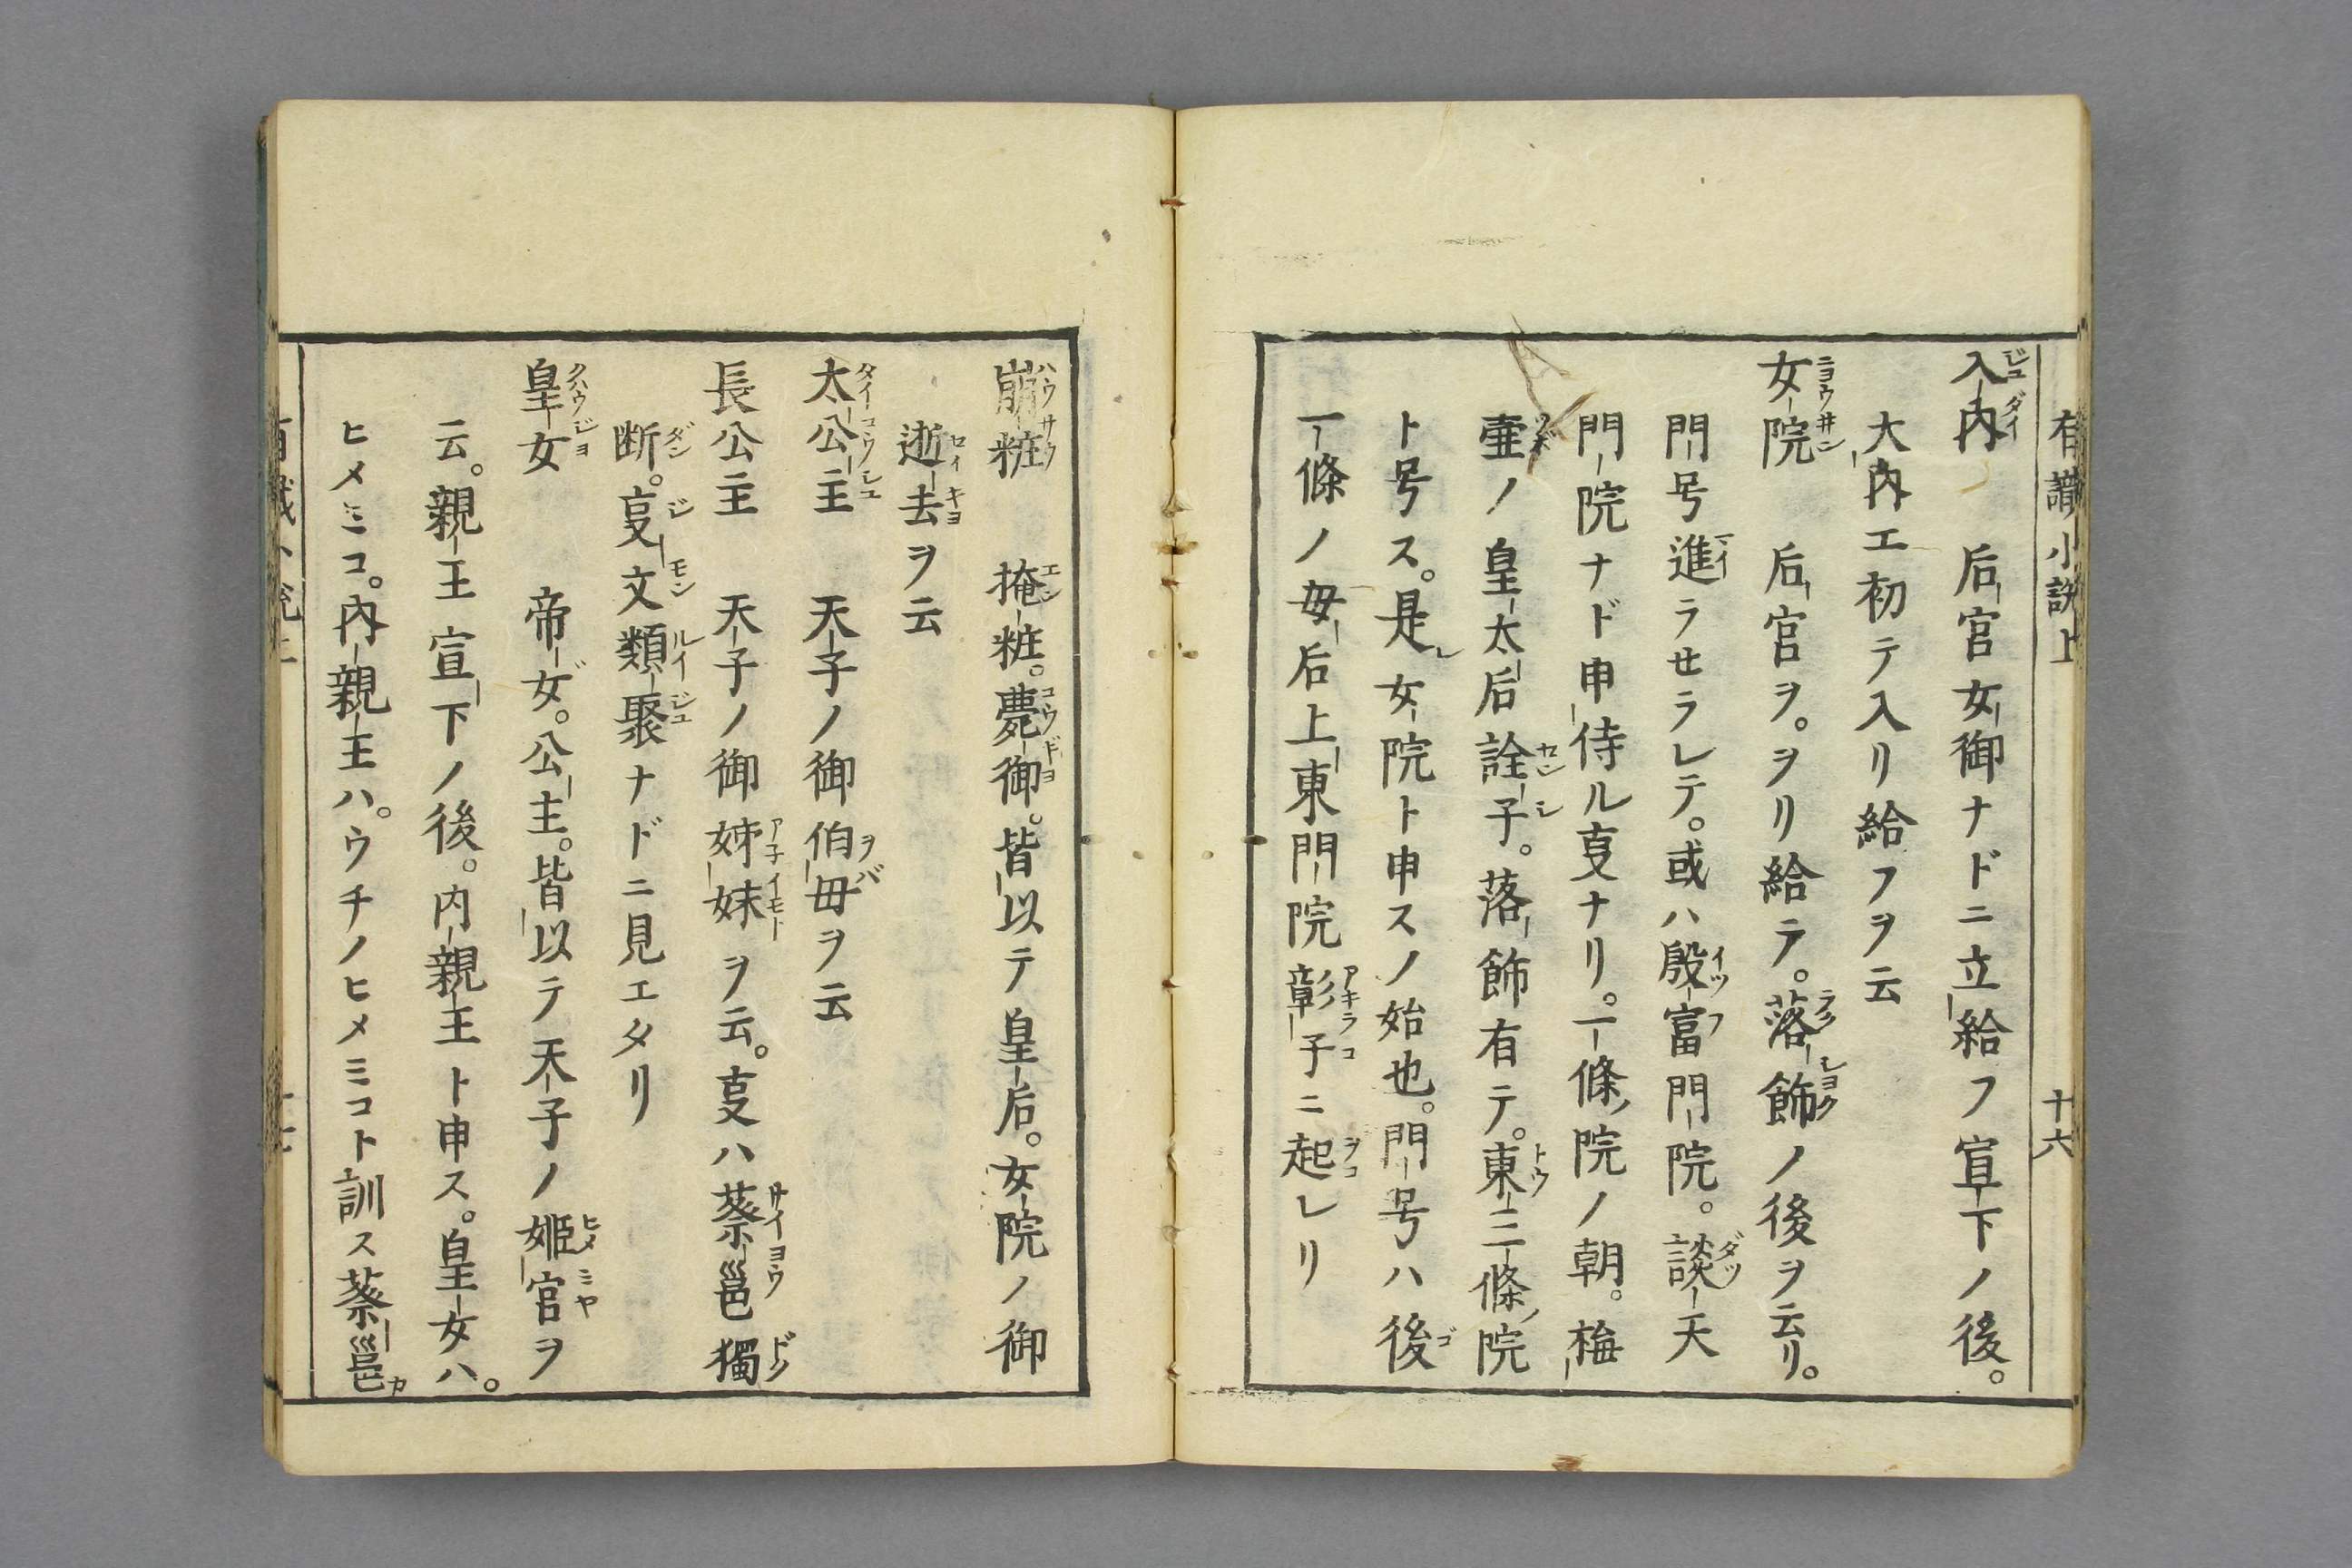 有識小説上 十六
入内 后宮女御ナドニ立給フ宣下ノ後。
大内エ初テ入リ給フヲ云
女院 后宮ヲ。ヲリ給テ。落飾ノ後ヲ云リ。
門号進ラセラレテ。或ハ殷冨門院。談天
門院ナド申侍ル㕝ナリ。一條ノ院ノ朝。梅
壷ノ皇太后詮子。落飾有テ。東三條ノ院
ト号ス。是レ女院ト申スノ始也。門号ハ後
一條ノ母后上東門院彰子ニ起レリ
崩粧 掩粧。薨御。皆以テ皇后。女院ノ御
逝去ヲ云
太公主 天子ノ御伯母ヲ云
長公主 天子ノ御姉妹ヲ云。㕝ハ蔡邕獨
断。㕝文類聚ナドニ見エタリ
皇女 帝女。公主。皆以テ天子ノ姫宮ヲ
云。親王宣下ノ後。内親王ト申ス。皇女ハ。
ヒメミコ。内親王ハ。ウチノヒメミコト訓ス蔡邕カ